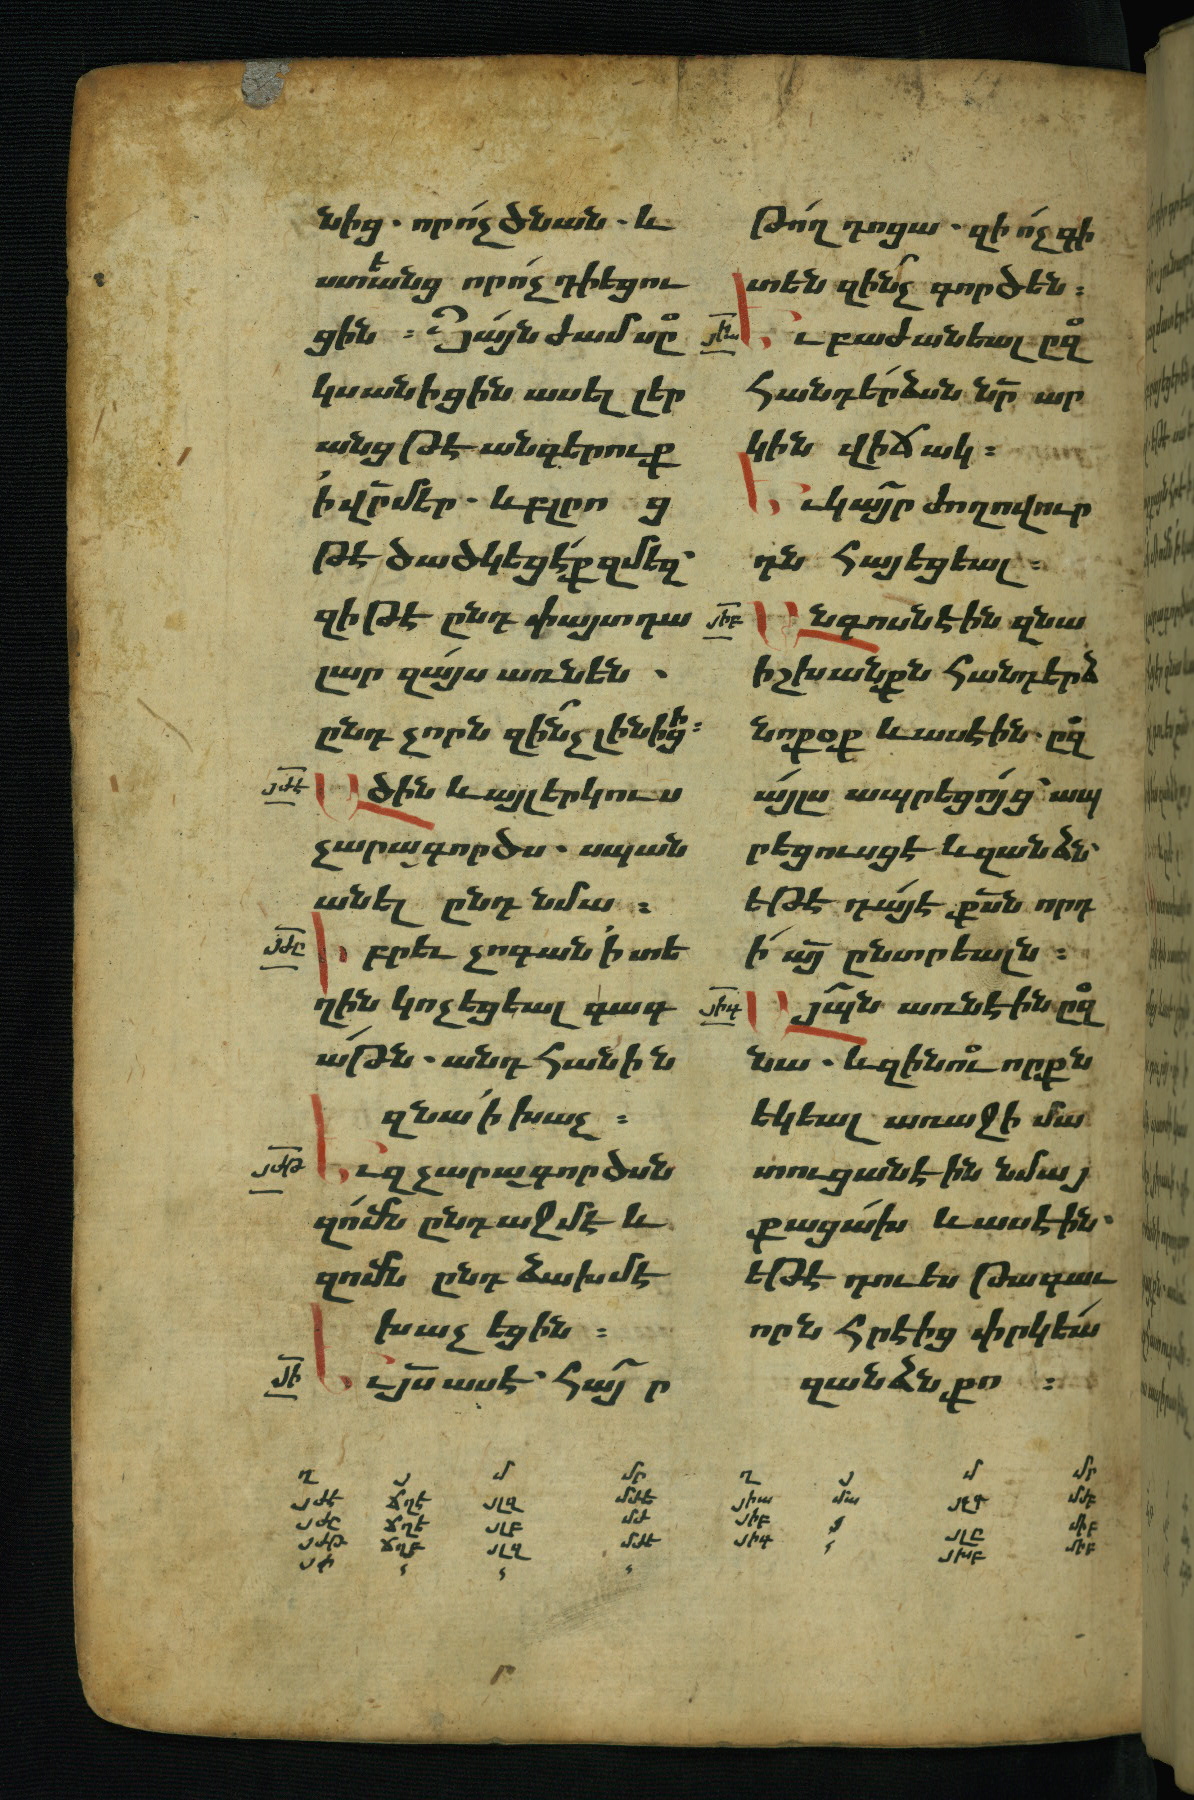 նից · որո՛չ ծնան · և
ստեանց որո՛չ դիեցու
ցին ։ Յա՛յնժամ սը
կսանիցին ասել լեր
անց թէ անգերուք
՛ի վր մեր · և բլրո ց
թէ ծածկեցէ՛ք զմեզ՝
զի թէ ընդ փայտ դա
լար զա՛յս առնեն ·
ընդ չորն զի՞նչ լինիցի ։
յժէ Ածին և այլ երկուս
չարագործս · սպան
անել ընդ նմա ։
յժը Իբրև չոգան ՛ի տե
ղին կոչեցեալ գագ
ա՛թն · անդ հանին
զնա ՛ի խաչ ։
յժթ Եւ զչարագործսն
զո՛մն ընդ աջմէ և
զոմն ընդ ձախմէ
խաչեցին ։
յի Եւ յս ասէ՝ հայր
թո՛ղ դոցա · զի ո՛չ գի
տեն զի՞նչ գործեն ։
յիա Եւ բաժանեալ ըզ
հանդերձսն նր ար
կին վիճակ ։
Եւ կայր ժողովուր
դն հայեցեալ ։
յիբ Անգոսնէին զնա
իշխանքն հանդերձ
նոքօք և ասէին · ըզ
ա՛յլս ապրեցո՛յց՝ ապ
րեցուսցէ և զանձն՝
եթէ դա՛յէ քսն որդ
ի՛ այ ընտրեալն ։
յիգ Այպն առնէին ըզ
նա · և զինու որքն
եկեալ առաջի մա
տուցանէին նմայ
քացա՛խ և ասէին ·
եթէ դու ես թագաւ
որն հրէից փրկեա՛
զանձն քո ։
ղ յ մ մր ղ յ մ մր
յժէ ճղէ յլզ մժե յիա
յժը ճղէ յլբ մժ յիբ
յժթ ճղբ յլզ մժէ յիգ
յի